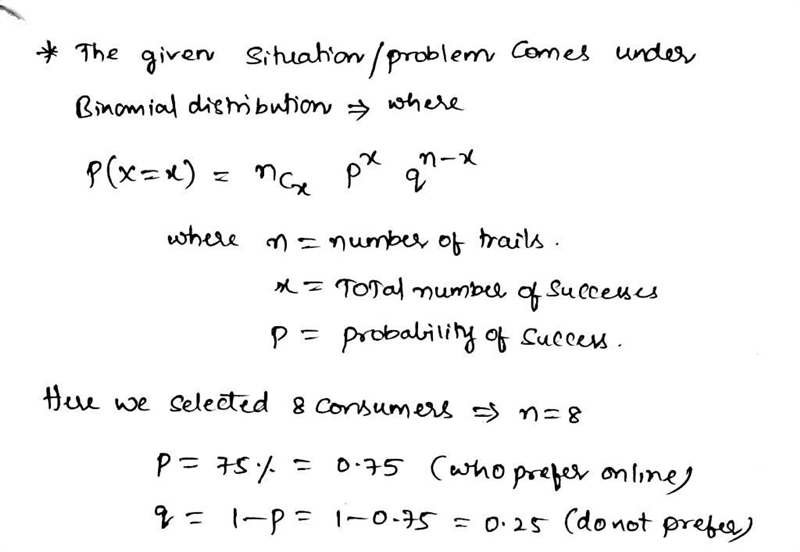 * The given situation/problem comes under
Binomial distribution ⇒ where
P(x=x) = nCx p^x q^n-x
where n = number of trails.
x = Total number of successes
p = probability of success.
Here we selected 8 consumers ⇒ n=8
p = 75% = 0.75 (who prefer online)
q = 1-p = 1-0.75 = 0.25 (do not prefer)